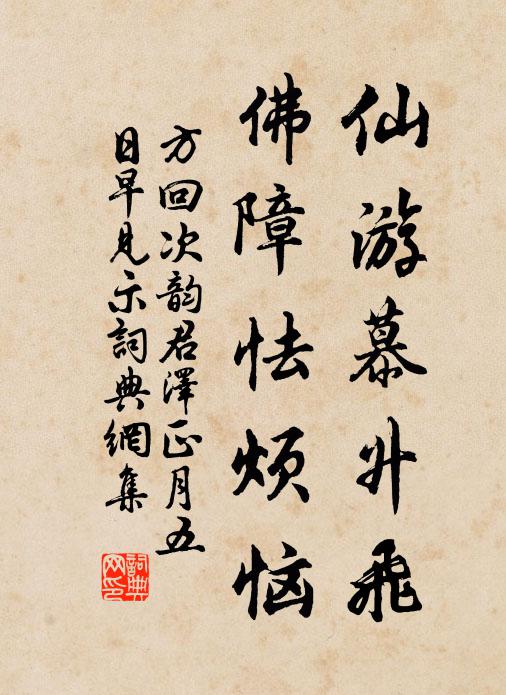 仙游慕升飛
佛障怯烦恼
方回次韵君澤正月五
日早見示詞典網集
詞典网印